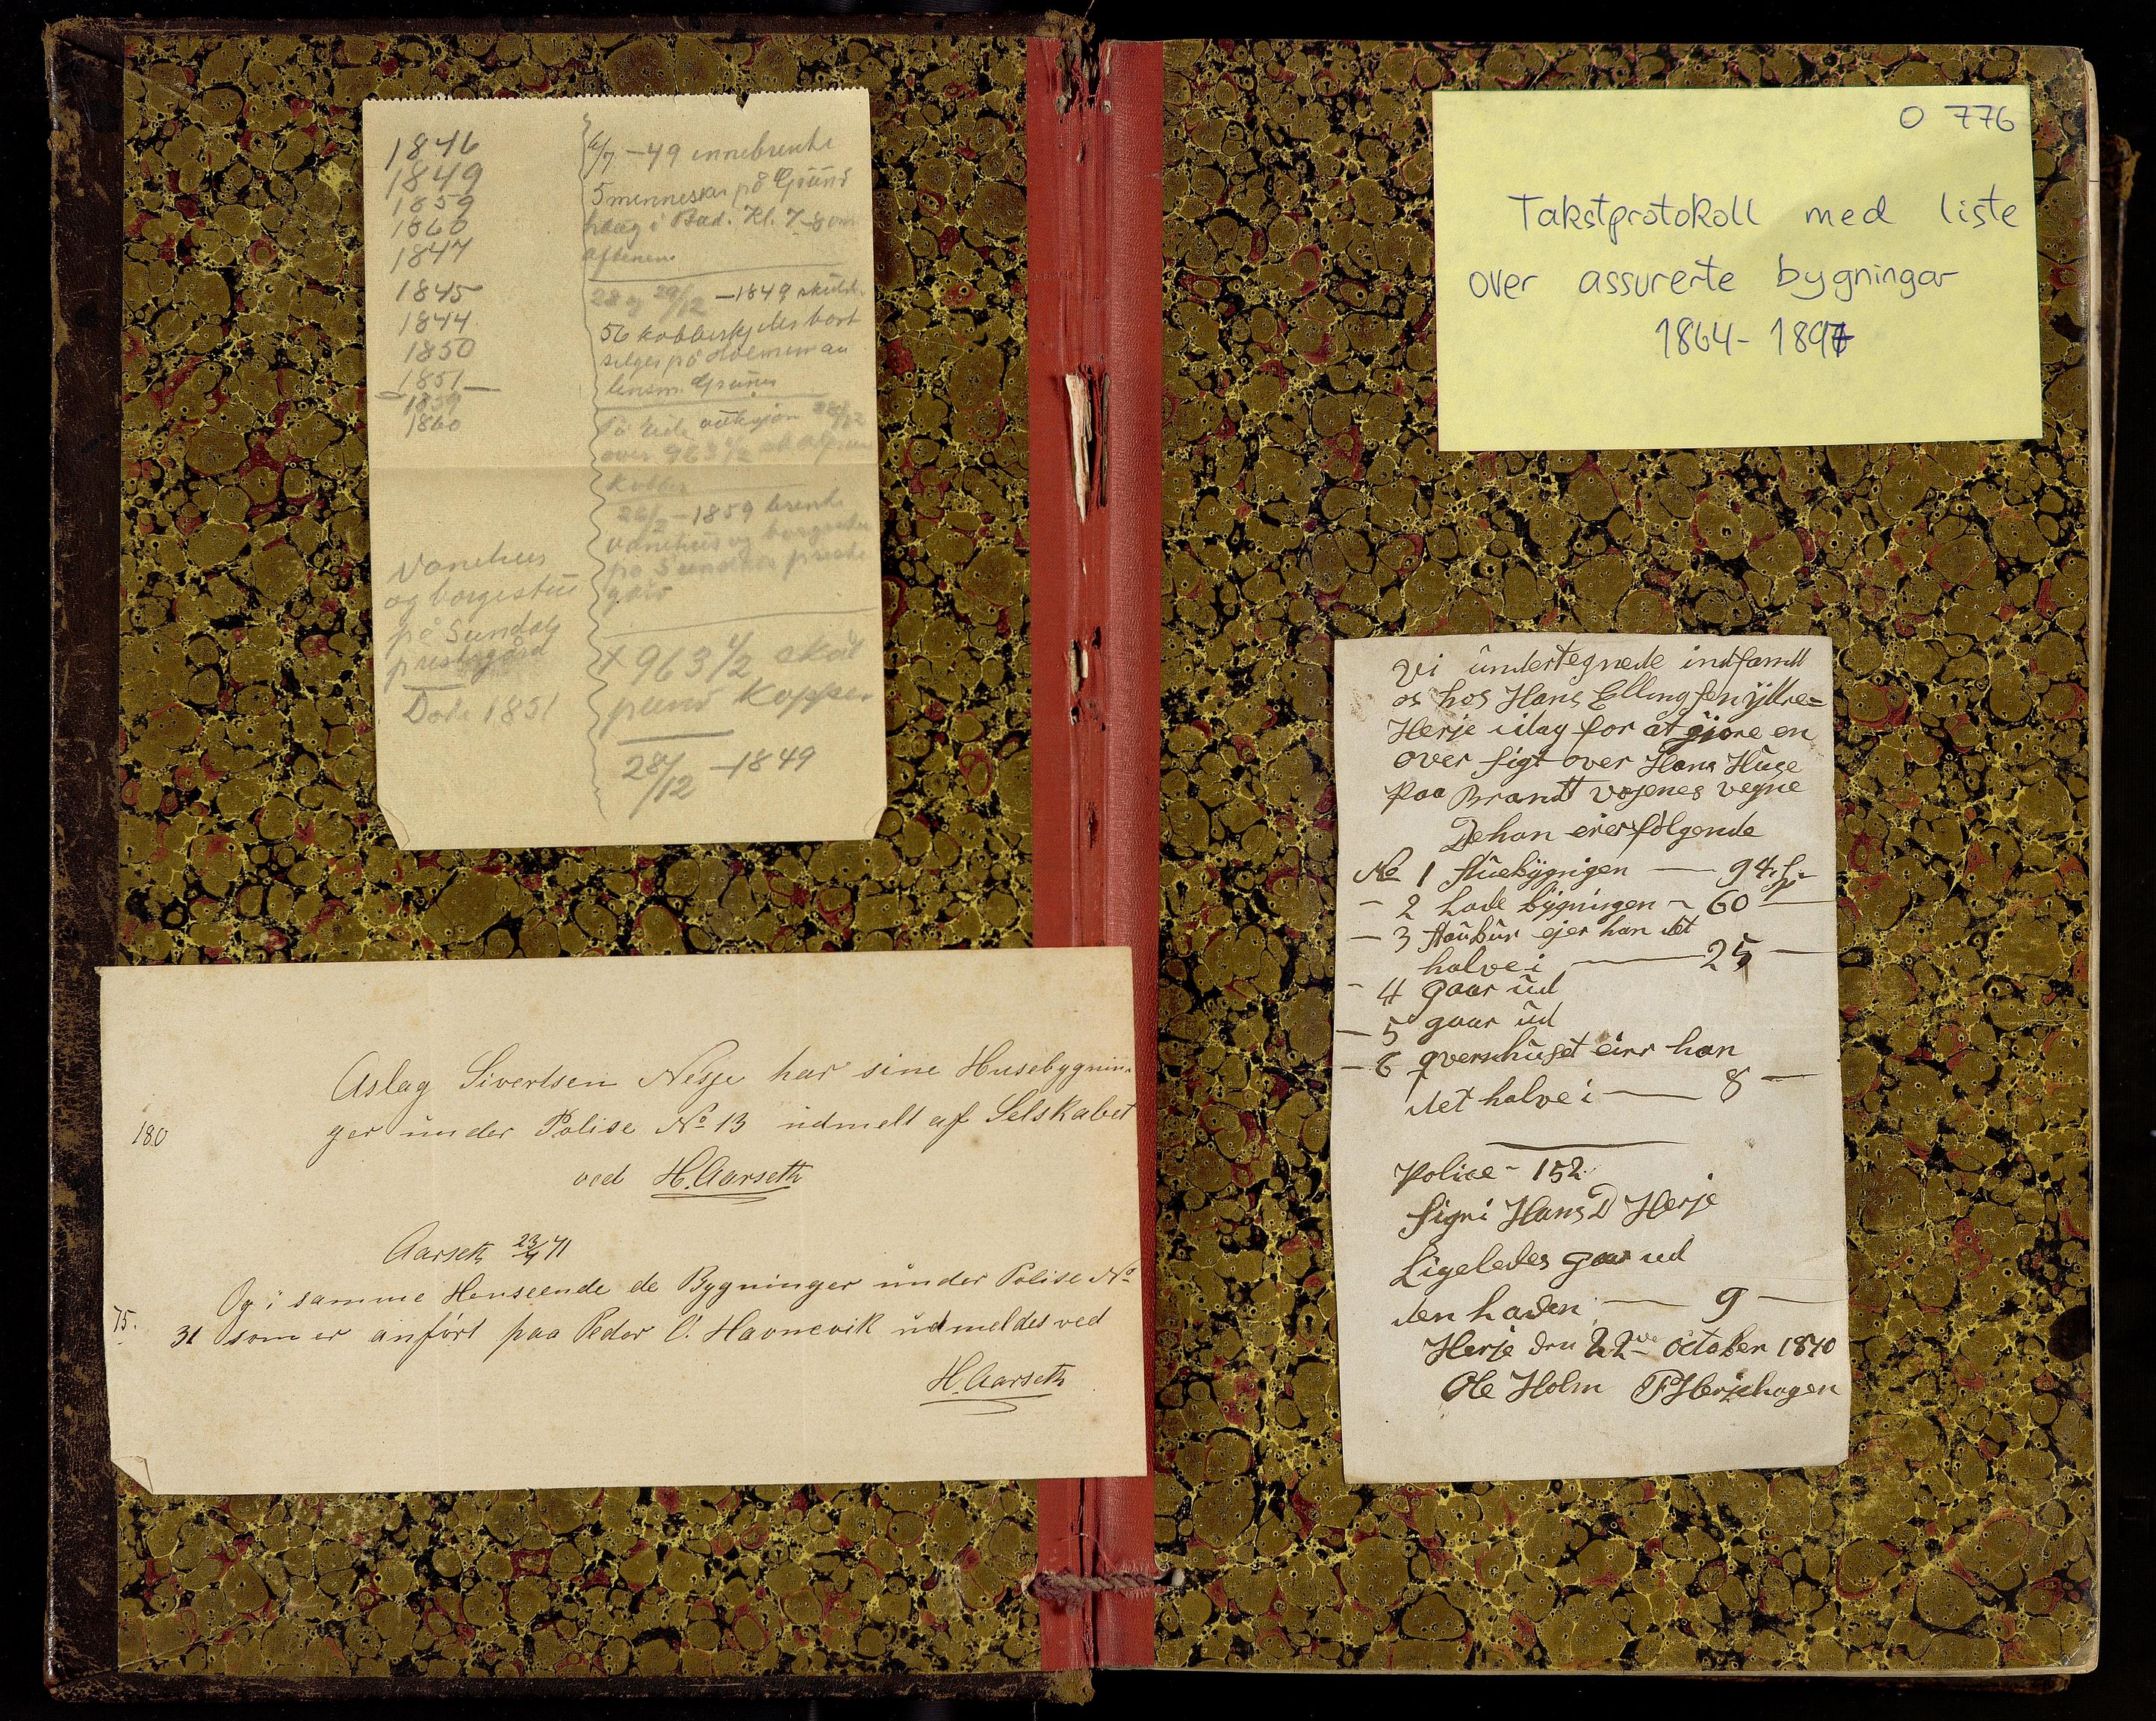 1846
1849
1859
1860
1847
1845
1844
1850
1851
1859
1860
Vanehus
og borgestue
på Sundals
prestegård
Døde 1851
6/7 -49 innebrente
5 mennesker på Grund
haug i Bad. Kl. 7-8 om
aftenen
28 og 29/12 -1849 skuld.
56 kobberskjeder bort
selges på Holmen av
lensm. Grüner
auksjon 28/12
over 963 1/2
Kobber
26/2 -1859 brente
vanehus og borgestue
på Sundals preste
gård
+ 963 1/2 skål
pund Kopper
28/12 -1849
Aslag Sivertsen Nesje har sine Husebygnin-
180 ger under Polise No 13 udmelt af Selskabet
ved H. Aarseth
Aarseth 23/4 71
Og i samme Henseende de Bygninger under Polise No
75. 31 som er anført paa Peder O. Havnevik udmeldes ved
H. Aarseth
O 776
Takstprotokoll med liste
over assurerte bygningar
1864- 1897
Vi undertegnede indfandt
os hos Hans Ellingsen Yttre=
Herje idag for at gjøre en
over sigt over Hans Huse
paa Brandt væsenes vegne
De han eier følgende
No 1 stuebygnigen — 94 sp
- 2 Lade bygningen - 60 —
- 3 staubur ejer han det
halve i — 25 —
- 4 gaar ud
- 5 gaar ud
- 6 qvernhuset eier han
det halve i — 8 —
Police - 152
Signi Hans D Herje
Ligeledes gaar ud
den laden — 9 —
Herje den 22de october 1870
Ole Holm P Herjehagen